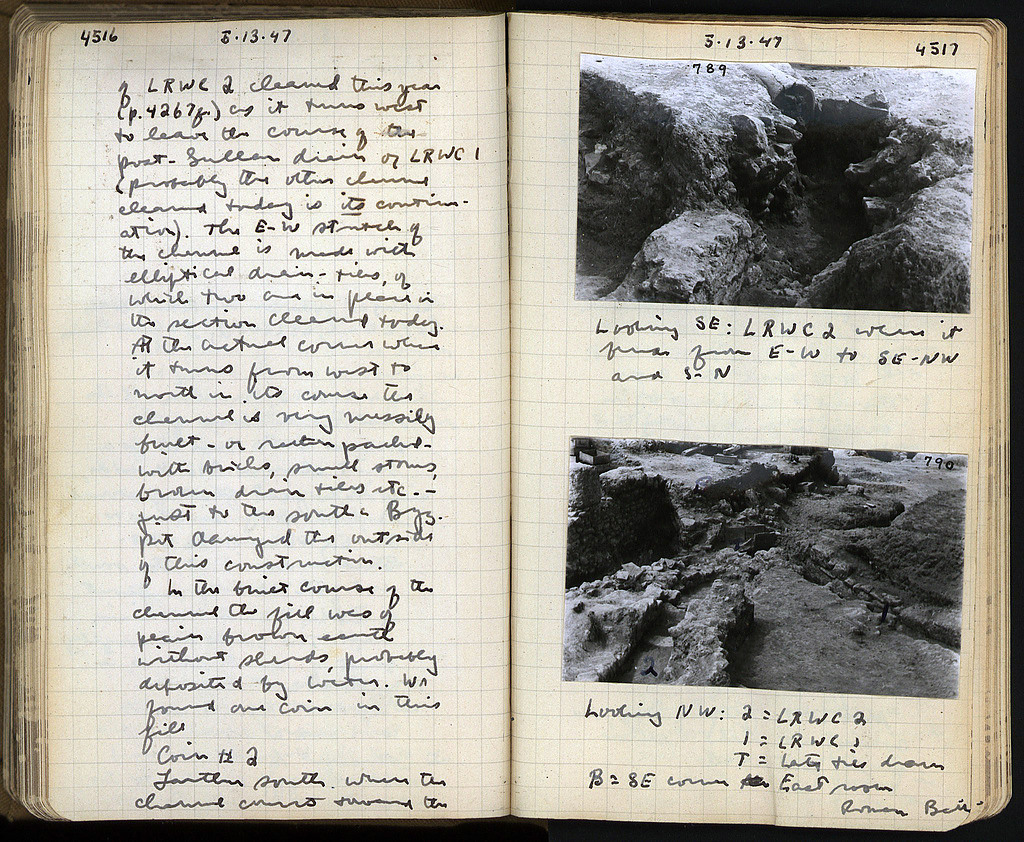 4516
5.13.47
of LRWC 2 cleaned this year
(p. 4267f.) as it turns west
to leave the course of the
post-Sullan drain of LRWC 1
(probably the other channel
cleaned today is its contin-
ation). The E-W stretch of
the channel is made with
elliptical drain-tiles, of
which two are in place in
the section cleaned today.
At the actual corner where
it turns from west to
north in its course the
channel is very messily
built - or rather packed -
with bricks, small stones,
broken drain tiles etc. -
just to the south a Byz.
pit damaged the outside
of this construction.
In the brief course of the
channel the fill was of
plain brown earth
without sherds, probably
deposited by water. We
found one coin in this
fill
Coin # 2
Farther south where the
channel courses toward the
5.13.47
4517
789
Looking SE: LRWC 2 where it
turns from E-W to SE-NW
and S-N
790
2
1
Looking NW: 2 = LRWC 2
1 = LRWC 1
T = Late tiles drain
B = SE corner East room
Roman Bath